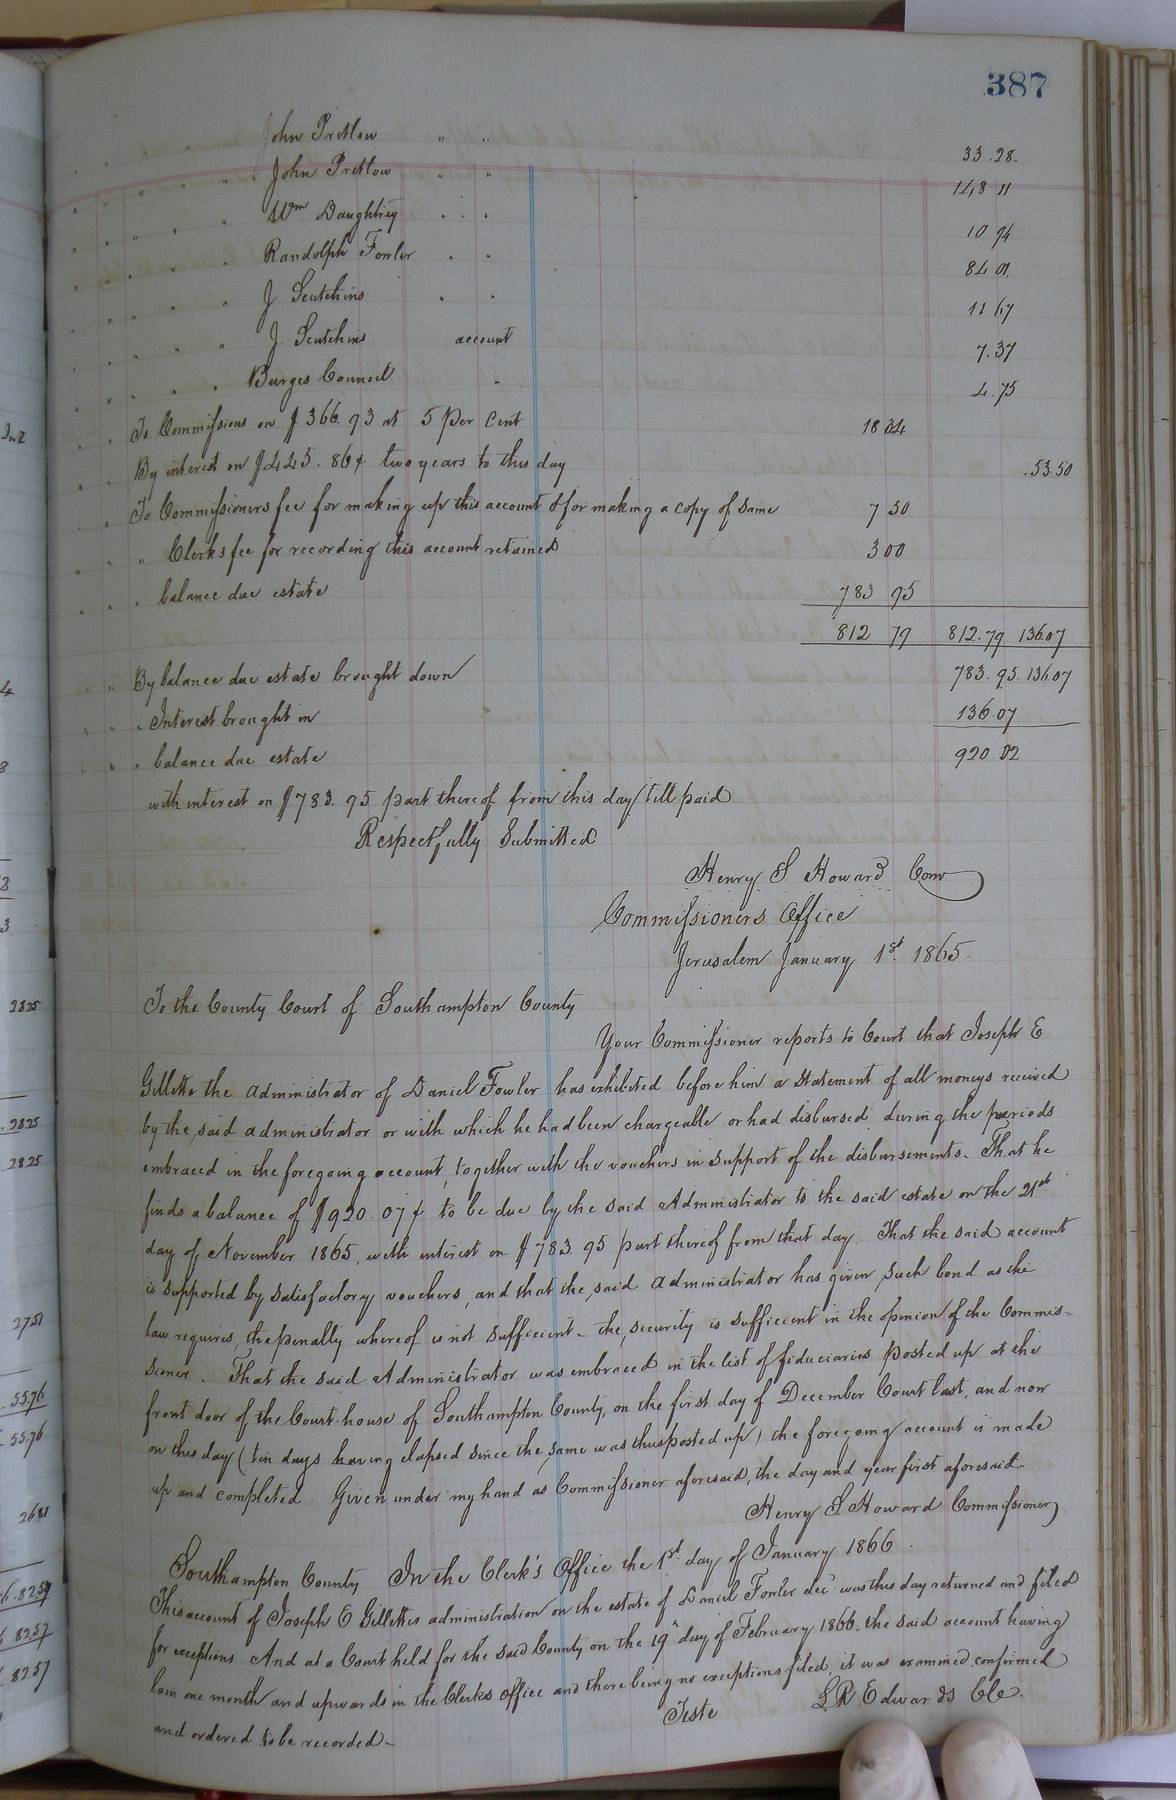 387
John Pretlow " " 33.28.
" " " " John Pretlow " " 148 11
" " " " Wm Daughtrey " " 10 94
" " " " Randolph Fowler " " 84 01.
" " " " J Scutchins " " 11 67
" " " " J. Scutchins account 7.37
" " " " Burges Council " 4.75
" " To Commissions on $366.93 at 5 Per Cent 18 34
" " By interest on $445.86¢ two years to this day 53.50
" " To Commissioners fee for making up this account & for making a copy of same 7 50
" " " Clerks fee for recording this account retained 3 00
" " " balance due estate 783 95
812 79 812.79 136.07
" By balance due estate brought down 783.95 136.07
" " " Interest brought in 136.07
" " " balance due estate 920.02
with interest on $783.95 part thereof from this day till paid
Respectfully Submitted
Henry S Howard Com
Commissioners Office
Jerusalem January 1st. 1865.
To the County Court of Southampton County
Your Commissioner reports to Court that Joseph E
Gillette the administrator of Daniel Fowler has exhibited before him a Statement of all moneys received
by the said administrator or with which he had been chargeable or had disbursed during the periods
embraced in the foregoing account, together with the vouchers in support of the disbursements. That he
finds a balance of $920.07¢ to be due by the said Administrator to the said estate on the 21st
day of November 1865, with interest on $783.95 part thereof from that day. That the said account
is supported by satisfactory vouchers, and that the said administrator has given such bond as the
law requires, the penalty whereof is not sufficient - the security is sufficient in the opinion of the Commis-
sioner. That the said Administrator was embraced in the list of fiduciaries posted up at the
front door of the Court-house of Southampton County, on the first day of December Court last, and now
on this day (ten days having elapsed since the same was thus posted up) the foregoing account is made
up and completed. Given under my hand as Commissioner aforesaid, the day and year first aforesaid.
Henry S. Howard Commissioner
Southampton County In the Clerk's Office the 1st. day of January 1866.
This account of Joseph E Gillettes administration on the estate of Daniel Fowler dec was this day returned and filed
for exceptions. And at a Court held for the said County on the 19th day of February 1866. the said account having
lain one month and upwards in the Clerks Office and there being no exceptions filed, it was examined, confirmed
and ordered to be recorded -
Teste L R Edwards Cle.
2825
2825
2825
2751
5576
5576
2681
8257
8257
8257